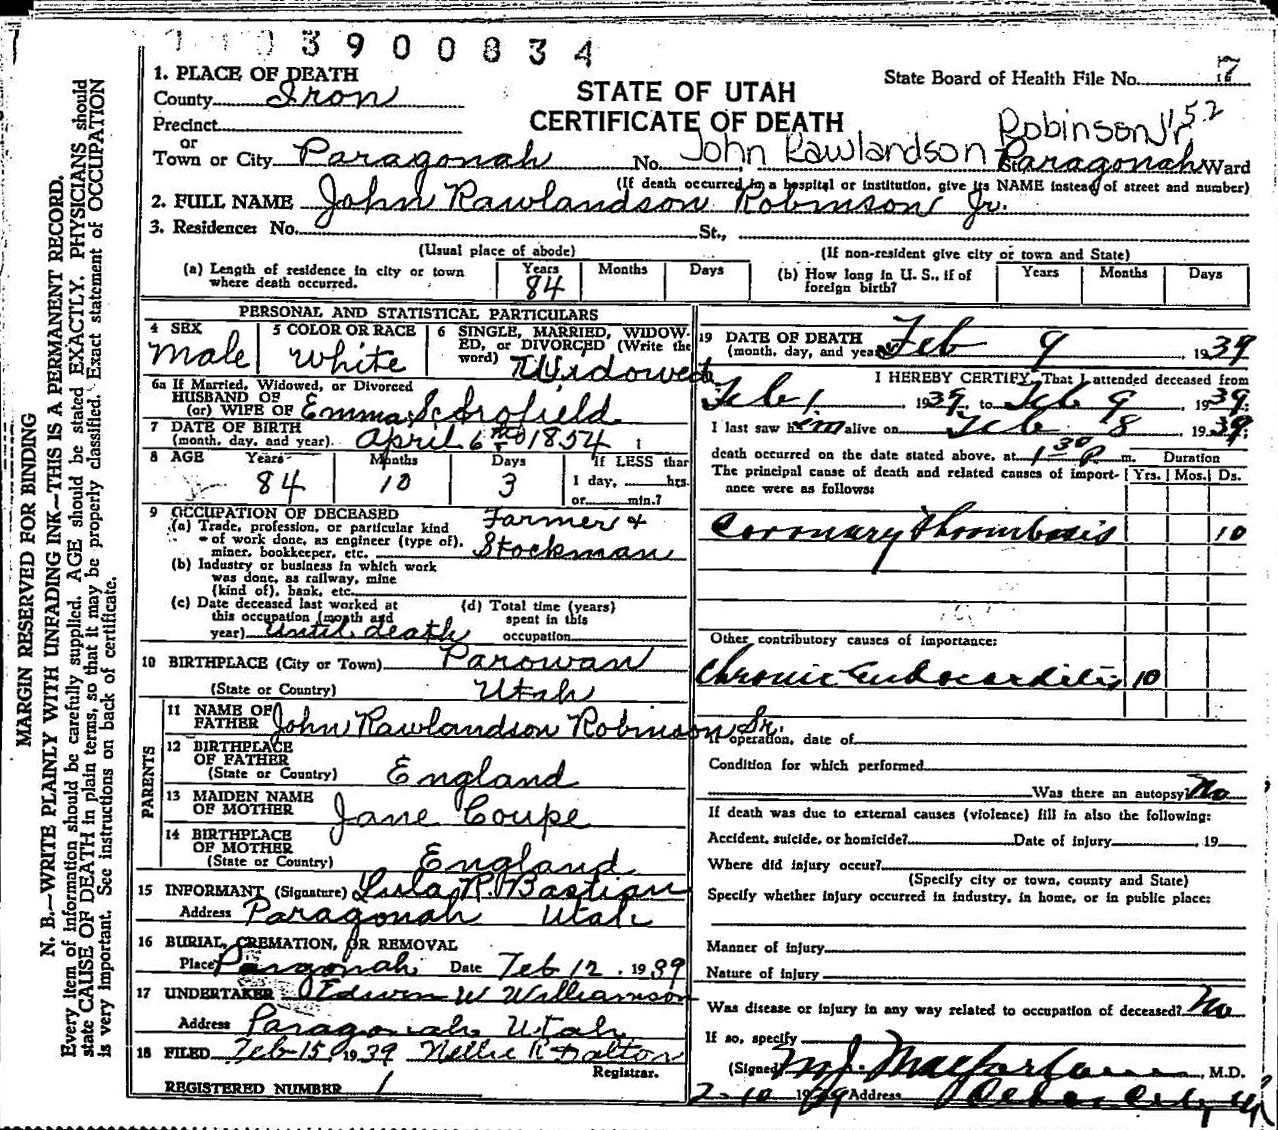 3900834
1. PLACE OF DEATH
County Iron
State Board of Health File No. 7
STATE OF UTAH
CERTIFICATE OF DEATH
Precinct
or
Town or City Paragonah No. John Rawlandson Robinson Jr. '52 Paragonah Ward
(If death occurred in a hospital or institution, give its NAME instead of street and number)
2. FULL NAME John Rawlandson Robinson Jr.
3. Residence: No. St.,
(Usual place of abode) (If non-resident give city or town and State)
(a) Length of residence in city or town where death occurred. Years 84 Months Days
(b) How long in U. S., if of foreign birth? Years Months Days
PERSONAL AND STATISTICAL PARTICULARS
4 SEX Male
5 COLOR OR RACE White
6 SINGLE, MARRIED, WIDOWED, or DIVORCED (Write the word) Widowed
6a If Married, Widowed, or Divorced
HUSBAND OF
(or) WIFE OF Emma Schofield
7 DATE OF BIRTH
(month, day, and year). April 6 1854
8 AGE Years 84 Months 10 Days 3 If LESS than 1 day, hrs. or min.?
9 OCCUPATION OF DECEASED
(a) Trade, profession, or particular kind of work done, as engineer (type of), miner, bookkeeper, etc. Farmer + Stockman
(b) Industry or business in which work was done, as railway, mine (kind of), bank, etc.
(c) Date deceased last worked at this occupation (month and year) Until death
(d) Total time (years) spent in this occupation
10 BIRTHPLACE (City or Town) Parowan
(State or Country) Utah
PARENTS
11 NAME OF FATHER John Rawlandson Robinson Sr.
12 BIRTHPLACE OF FATHER
(State or Country) England
13 MAIDEN NAME OF MOTHER Jane Coupe
14 BIRTHPLACE OF MOTHER
(State or Country) England
15 INFORMANT (Signature) Lula R. Bastian
Address Paragonah Utah
16 BURIAL, CREMATION, OR REMOVAL
Place Paragonah Date Feb 12, 1939
17 UNDERTAKER Edwin W Williamson
Address Paragonah Utah
18 FILED Feb 15 1939 Nellie R Dalton
Registrar.
REGISTERED NUMBER 1
19 DATE OF DEATH
(month, day, and year) Feb 9 1939
I HEREBY CERTIFY, That I attended deceased from
Feb 1 1939, to Feb 9 1939.
I last saw him alive on Feb 8 1939,
death occurred on the date stated above, at 1 30 P m. Duration
The principal cause of death and related causes of importance were as follows: Yrs. Mos. Ds.
Coronary Thrombosis 10
Other contributory causes of importance:
Chronic Endocarditis 10
If operation, date of
Condition for which performed
Was there an autopsy? No
If death was due to external causes (violence) fill in also the following:
Accident, suicide, or homicide? Date of injury , 19
Where did injury occur?
(Specify city or town, county and State)
Specify whether injury occurred in industry, in home, or in public place:
Manner of injury
Nature of injury
Was disease or injury in any way related to occupation of deceased? No
If so, specify
(Signed) M.J. Macfarlane, M.D.
2-10 1939 Address Cedar City Ut
MARGIN RESERVED FOR BINDING
N. B.—WRITE PLAINLY WITH UNFADING INK—THIS IS A PERMANENT RECORD.
Every item of information should be carefully supplied. AGE should be stated EXACTLY. PHYSICIANS should
state CAUSE OF DEATH in plain terms, so that it may be properly classified. Exact statement of OCCUPATION
is very important. See instructions on back of certificate.